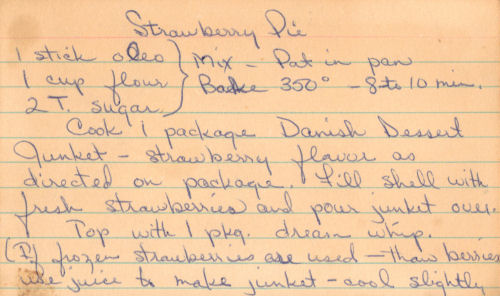 Strawberry Pie
1 stick oleo } Mix - Pat in pan
1 cup flour } Bake 350° - 8 to 10 min.
2 T. sugar
Cook 1 package Danish Dessert
Junket - strawberry flavor as
directed on package. Fill shell with
fresh strawberries and pour junket over.
Top with 1 pkg. dream whip.
(If) frozen strawberries are used - thaw berries
use juice to make junket - cool slightly